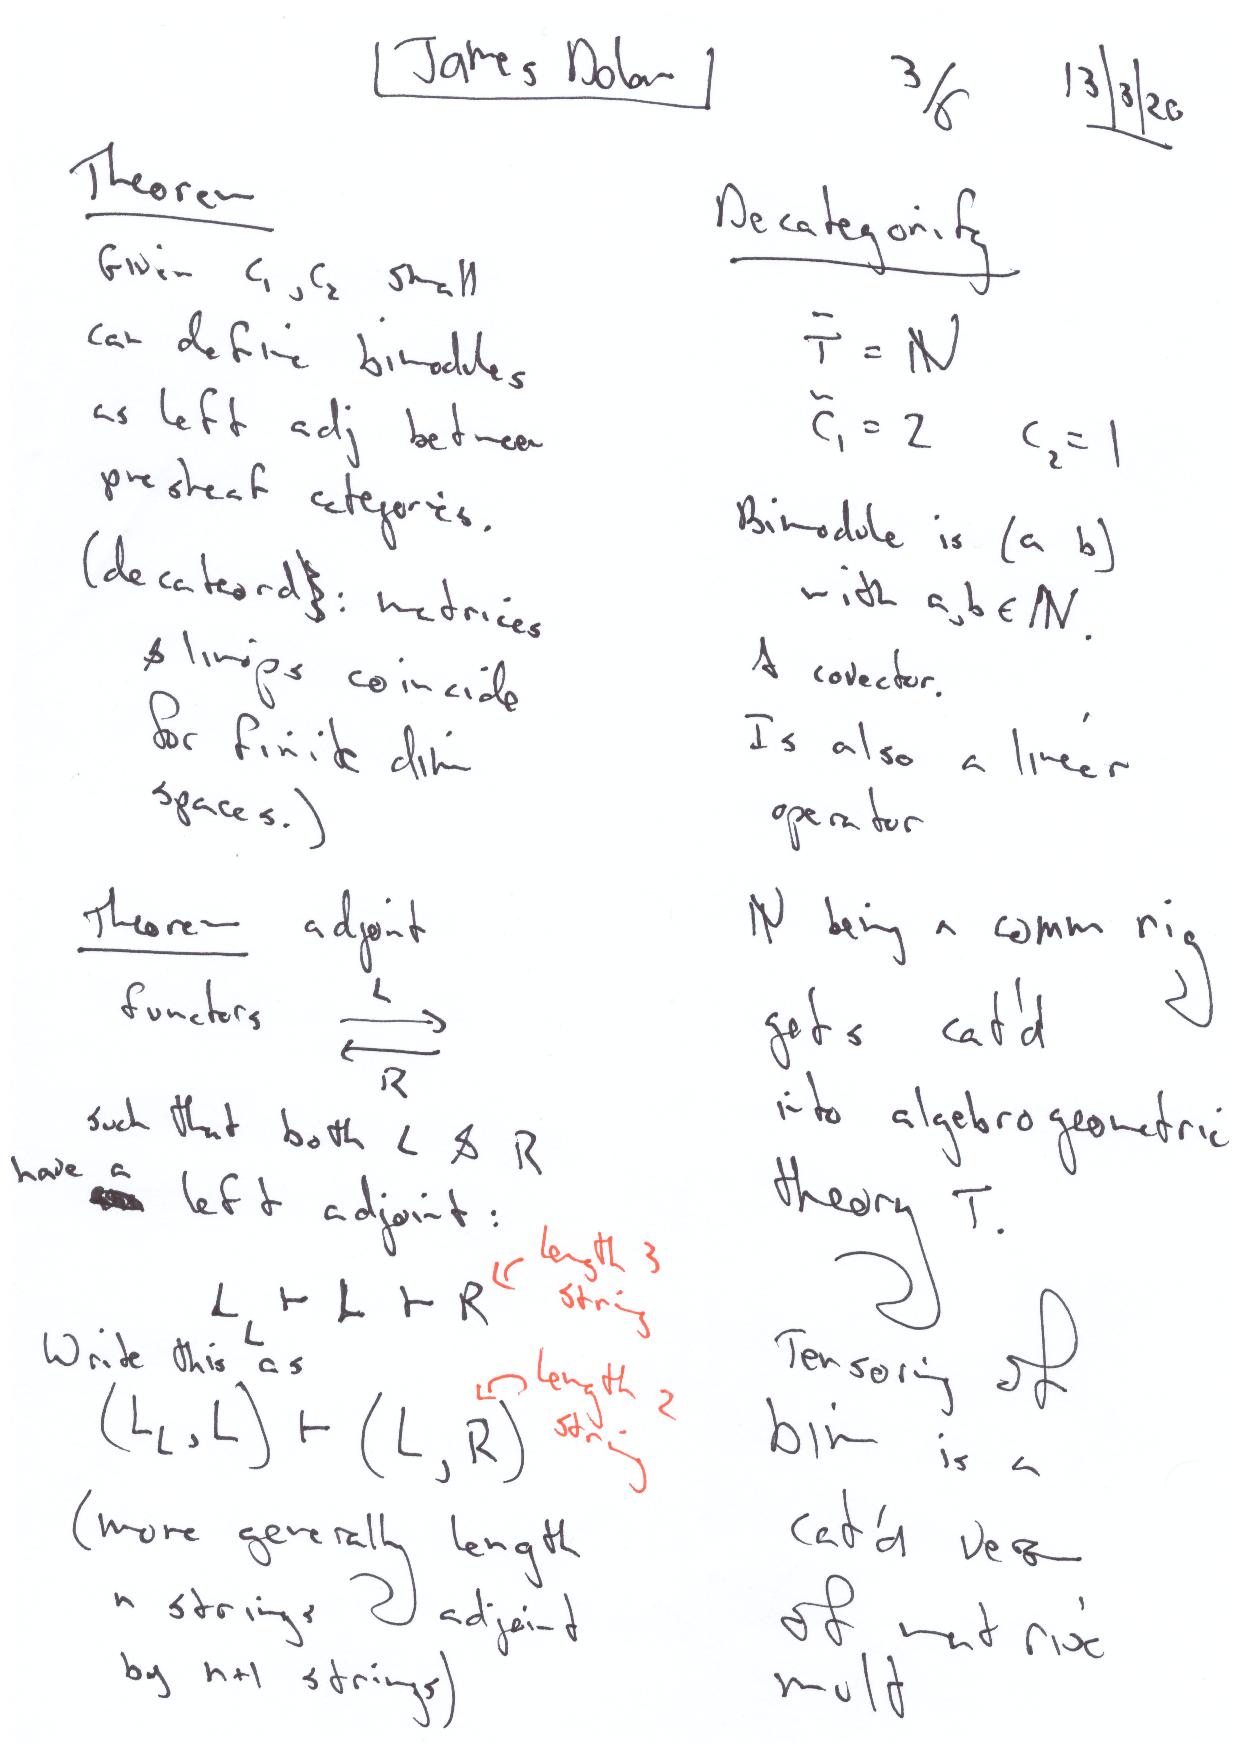 James Dolan
3/6
13/3/20
Theorem
Given C₁, C₂ small
can define bimodules
as left adj between
presheaf categories.
(decateord}: matrices
& linops coincide
for finite dim
spaces.)
Theorem adjoint
functors L
R
such that both L & R
have a left adjoint:
L_L ⊢ L ⊢ R
length 3
string
Write this as
(L_L, L) ⊢ (L, R)
length 2
string
(more generally length
n strings adjoint
by n+1 strings)
Decategorify
T̄ = ℕ
C̃₁ = 2 C₂ = 1
Bimodule is (a b)
with a,b ∈ ℕ.
A covector.
Is also a linear
operator
ℕ being a comm rig
gets cat'd
into algebrogeometric
theory T.
Tensoring of
bim is a
cat'd
of matrix
mult